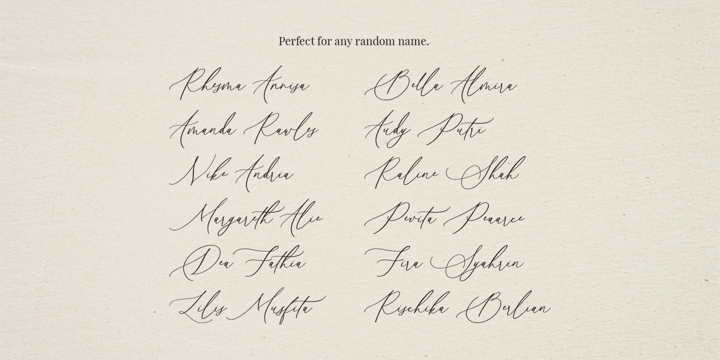 Perfect for any random name.
Rhesma Annisa
Bella Almira
Amanda Rawles
Audy Putri
Nike Andria
Raline Shah
Margareth Alie
Pevita Pearce
Dea Fathia
Fira Syahrin
Lilis Musfita
Rischika Berlian